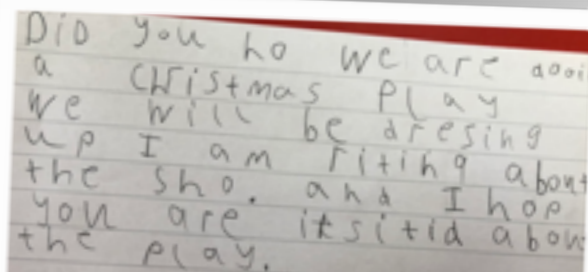 DiD you ho we are dooi
a christmas play
we will be dresing
up I am riting about
the sho. and I hop
you are itsitid abou
the play.